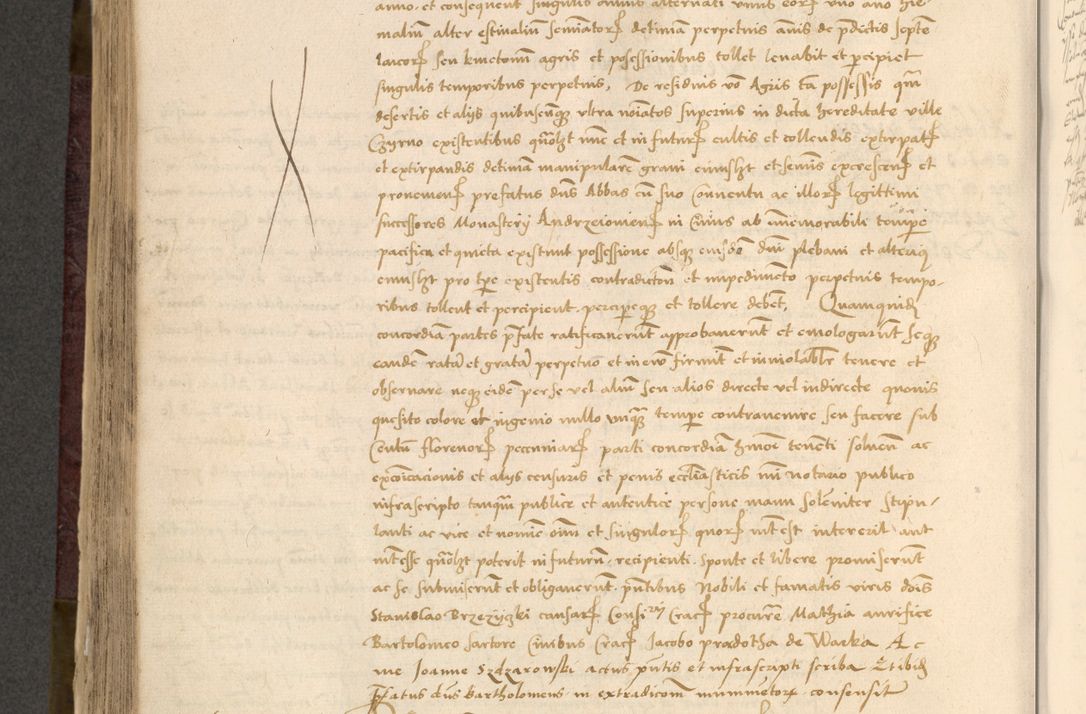 anno et consequent singulis annis alternati unus eorꝝ uno ano hie-
malium alter estivalium seminatorꝝ decimã perpetuis annis de pdictis septẽ
laicorꝝ seu kmetonũ agris et posessionibus tollet levabit et percipiet
singulis temporibus perpetuis, De residuis vo Agris tã possessis qm̃
desertis et alijs quibuscũqʒ ultra noĩatos superius in dicta hereditate ville
Czyrno existentibus quõlzt nũc et in futurꝝ cultis et collendis extirpatꝝ
et extirpandis decimã manipularẽ grani cuiuslzt et semĩs excrescenꝝ et
provenienꝝ prefatus dñs Abbas cũ suo Conventu ac illorꝝ legittimi
successores Monasterij Andrzeiovienꝝ in Cuius ab imẽmorabili tempe
pacifica et quieta existunt possessione absqʒ eiusdẽ dñi plebani et alterius
cuiuslzt pro tpe existentis contradictõe et impedimẽto perpetuis tempo-
ribus tollent et percipient, percipereqʒ et tollere debẽt, Quamquidẽ
concordiã partes pfate ratificaverũt approbaverũt et emologarũt seqʒ
eandẽ ratã et gratã perpetuo et in evũ firmit et inviolablr tenere et
observare neqʒ eidẽ per se vel aliũ seu alios directe vel indirecte quovis
quesito colore et ingenio nullo unqʒ tempe contravenire seu facere sub
Centũ florenorꝝ pecuniarꝝ parti concordiã hmõi tenẽti solvẽn ac
excõicacionis et alijs censuris et penis eccliãsticis mi notario publico
infrascripto tanqm̃ publice et autentice persone manu solemiter stipu-
lanti ac vice et nomie oĩm et singulorꝝ quorꝝ intest intererit aut
intesse quõlzt poterit in futurũ, recipienti. sponte et libere promiserũt
ac se submiserũt et obligaverũt. pñtibus Nobili et famatis viris dñis
Stanislao Brzezyczki causarꝝ Consiry Cracꝝ procurẽ Mathia aurifice
Bartolomeo sartore Civibus Cracꝝ Jacobo pradotha de Warka Ac
me Joanne Szdzarowski actus pñtis et infrascripti scriba Et ibidẽ
pfatus dñs Bartholomeus in extradicõem munimẽtorꝝ consensit